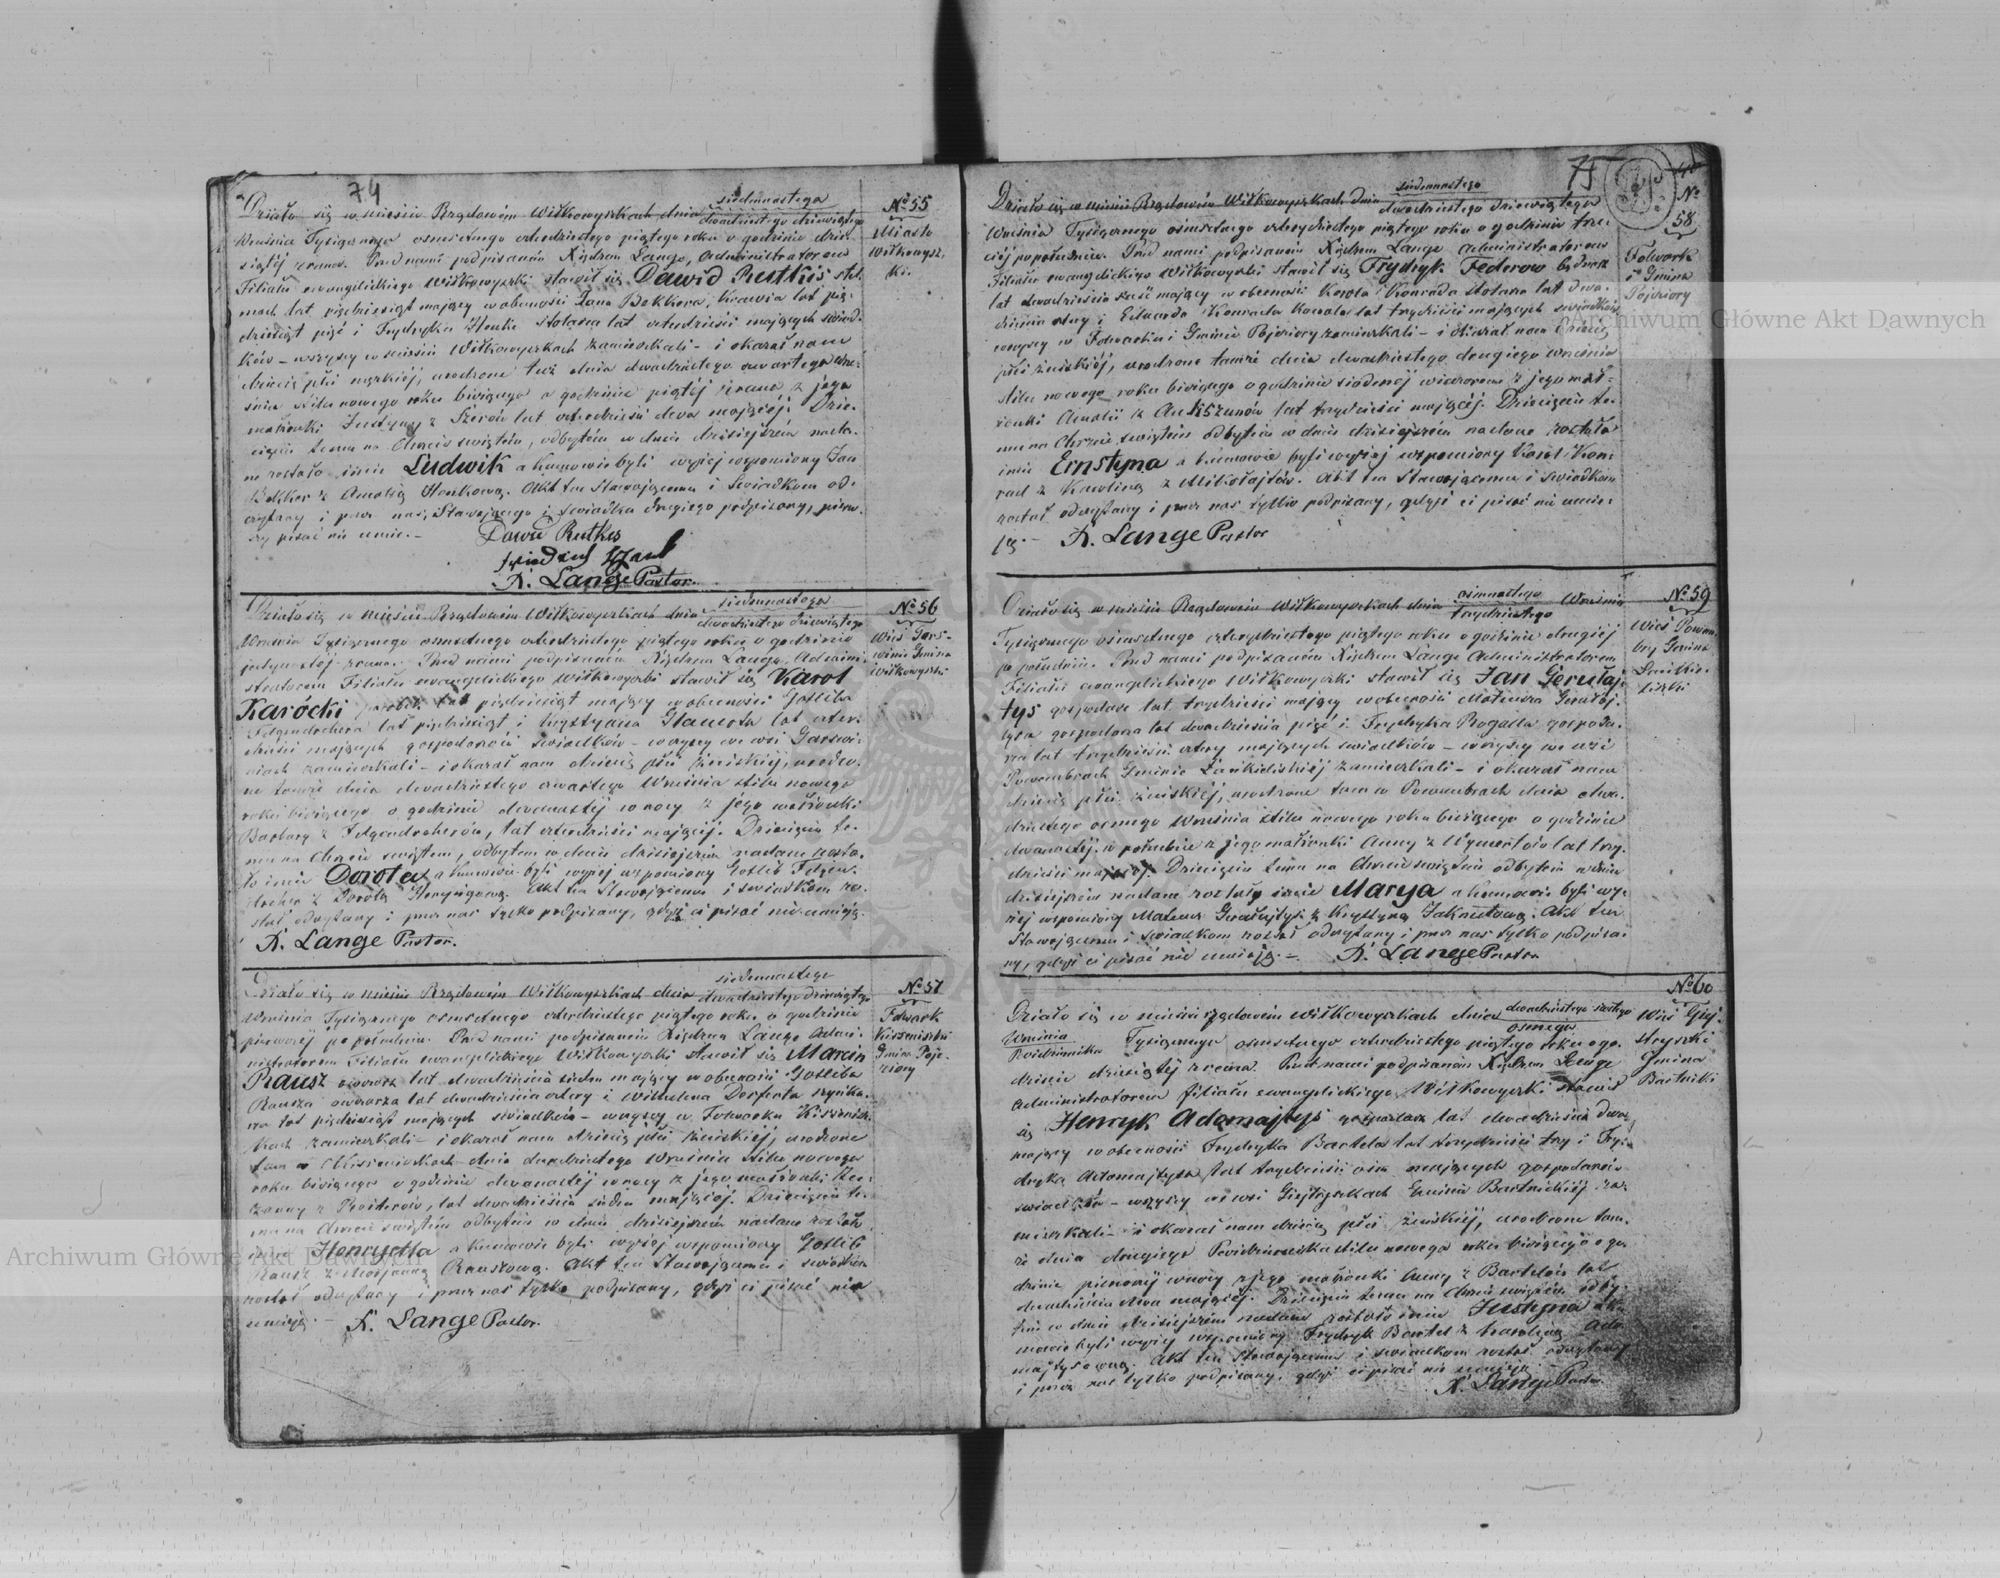 74
siedmnastego
Działo się w mieście Rządowém Wiłkowyszkach dnia dwudziestego dziewiątego
Września Tysiącznego osmsetnego czterdziestego piątego roku o godzinie dzie-
siątej zrana. Przed nami podpisaném Xiędzem Lange, Administratorem
Filiału ewangelickiego Wiłkowyszki stawił się Dawid Rutkis stel-
mach lat pięćdziesiąt mający w obecności Jana Bekkera, Krawca lat pię-
dziesiąt pięć i Frydryka Henke stolarza lat czterdzieści mających świad-
ków – wszyscy w mieście Wiłkowyszkach zamieszkali – i okazał nam
dziecię płci męzkiéj, urodzone tuż dnia dwudziestego czwartego Wrze-
śnia stilu nowego roku bieżącego o godzinie piątéj zrana z jego
małżonki Justyny z Szerów lat czterdzieści dwa mającéj. Dzie-
cięciu temu na Chrzcie świętém, odbytém w dniu dzisiejszém nada-
ne zostało imie Ludwik a kumowie byli wyżej wspomiony Jan
Bekker z Amalią Henkową. Akt ten Stawającemu i Świadkom od-
czytany i przez nas, Stawającego i świadka drugiego podpisany, pierw-
szy pisać nie umie. –
Dawid Rutkes
X. Lange Pastor.
№ 55
Miasto
Wiłkowysz-
ki.
siedmnastego
Działo się w mieście Rządowém Wiłkowyszkach dnia dwudziestego dziewiątego
Września Tysiącznego osmsetnego czterdziestego piątego roku o godzinie
jedynastéj zrana. Przed nami podpisaném Xiędzem Lange, Admini-
stratorem Filiału ewangelickiego Wiłkowyszki stawił się Karol
Karocki parobek lat pięćdziesiąt mający w obecności Gotliba
Felgendrehera lat pięćdziesiąt i Krystyana lat czter-
dzieści mających gospodarów świadków – wszyscy we wsi Garswi-
niach zamieszkali – i okazał nam dziecię płci żeńskiéj, urodzo-
ne tamże dnia dwudziestego czwartego Września stilu nowego
roku bieżącego o godzinie dwunastéj w nocy z jégo małżonki
Barbary z Felgendreherów, lat czterdzieści mającéj. Dziecięciu te-
mu na Chrzcie świętém, odbytem w dniu dzisiejszém nadane zosta-
ło imie Dorota, a kumowie byli wyżej wspomiony Gotlib Felgen-
dreher z Dorotą. Akt ten Stawającemu i świadkom zo-
stał odczytany i przez nas tylko podpisany, gdyż ci pisać nie umieją.
X. Lange Pastor.
№ 56
Wieś Gars-
winie Gmina
Wiłkowyszki
siedmnastego
Działo się w mieście Rządowém Wiłkowyszkach dnia dwudziestego dziewiątego
Września Tysiącznego osmsetnego czterdziestego piątego roku o godzinie
pierwszéj po południu. Przed nami podpisaném Xiędzem Lange Admi-
nistratorem Filiału ewangelickiego Wiłkowyszki stawił się Marcin
Rausz owczarz lat dwadzieścia siedm mający w obecności Gotliba
Rausza owczarza lat dwadzieścia cztery i Wilhelma Dorferta szynka-
rza lat pięćdziesiąt mających świadków – wszyscy w Folwarku Kiszenisz-
kach zamieszkali – i okazał nam dziecię płci żeńskiéj, urodzone
tam w Kiszeniszkach dnia dwudziestego Września stilu nowego
roku bieżącego o godzinie dwunastéj w nocy z jego małżonki Zu-
zanny z Reiterów, lat dwadzieścia siedm mającéj. Dziecięciu te-
mu na Chrzcie świętém odbytém w dniu dzisiejszém nadane zostało
imie Henryetta a kumowie byli wyżej wspomiony Gotlib
Rausz z Maryanną Rauszową. Akt ten Stawającemu i świadkom
został odczytany i przez nas tylko podpisany, gdyż ci pisać nie
umieją. – X. Lange Pastor.
№ 57
Folwark
Kiszeniszki
Gmina Poje-
ziory
75
siedmnastego
Działo się w mieście Rządowém Wiłkowyszkach dnia dwudziestego dziewiątego
Września Tysiącznego osmsetnego czterdziestego piątego roku o godzinie trze-
ciéj popołudniu. Przed nami podpisaném Xiędzem Lange Administratorem
Filiału ewangelickiego Wiłkowyszki stawił się Frydryk Federow bednarz
lat dwadzieścia sześć mający w obecności Karola Konrada stolarza lat dwa-
dzieścia cztery i Edwarda Konrada Kowala lat trzydzieści mających świadków
wszyscy w Folwarku i Gminie Pojeziory zamieszkali – i okazał nam dziecię
płci żeńskiéj, urodzone tamże dnia dwudziestego drugiego września
stilu nowego roku bieżącego o godzinie siódméj wieczorem z jego mał-
żonki Amalii z Aukszunów lat trzydzieści mającéj. Dziecięciu te-
mu na Chrzcie świętém odbytém w dniu dzisiejszém nadane zostało
imie Ernstyna a kumowie byli wyżej wspomiony Karol Kon-
rad z Karoliną z Mikołajtów. Akt ten Stawającemu i Świadkom
został odczytany i przez nas tylko podpisany, gdyż ci pisać nie umie-
ją. – X. Lange Pastor
№
58
Folwark
i Gmina
Pojeziory
osmnastego
Działo się w mieście Rządowém Wiłkowyszkach dnia trzydziestego Września
Tysiącznego osmsetnego czterdziestego piątego roku o godzinie drugiéj
po południu. Przed nami podpisaném Xiędzem Lange Administratorem
Filiału ewangelickiego Wiłkowyszki stawił się Jan Gerulaj-
tys gospodarz lat trzydzieści mający w obecności Mateusza Gerulaj-
tysa gospodarza lat dwadzieścia pięć i Frydryka Rogalla gospoda-
rza lat trzydzieści cztery mających świadków – wszyscy we wsi
Powembrach Gminie zamieszkali – i okazał nam
dziecię płci żeńskiéj, urodzone tam w Powembrach dnia dwu-
dziestego osmego Września stilu nowego roku bieżącego o godzinie
dwunastéj w południe z jego małżonki Anny z lat trzy-
dzieści mającéj. Dziecięciu temu na Chrzcie świętém odbytém w dniu
dzisiejszém nadane zostało imie Marya a kumowie byli wy-
żej wspomiony Mateusz Gerulajtys z Krystyną Jaknutową. Akt ten
Stawającemu i świadkom został odczytany i przez nas tylko podpisa-
ny, gdyż ci pisać nie umieją. – X. Lange Pastor
№ 59
Wieś Powem-
bry Gmina
№ 60
Działo się w mieście rządowém Wiłkowyszkach dnia dwudziestego szóstego
ósmego
Września
Października Tysiącznego osmsetnego czterdziestego piątego roku o go-
dzinie dziesiątej zrana. Przed nami podpisaném Xiędzem Lange
Administratorem filiału ewangelickiego Wiłkowyszki stawił
się Henryk Adomajtys gospodarz lat dwadzieścia dwa
mający w obecności Frydryka Bartela lat trzydzieści trzy i Fry-
dryka Adomajtysa lat trzydzieści ośm mających gospodarów
świadków – wszyscy we wsi Giejstryszkach Gminie Bartnickiéj za-
mieszkali – i okazał nam dziecię płci żeńskiéj, urodzone tam-
że dnia drugiego Października stilu nowego roku bieżącego o go-
dzinie pierwszéj w nocy z jego małżonki Anny z Bartelów lat
dwadzieścia dwa mającéj. Dziecięciu temu na Chrzcie świętém odby-
tém w dniu dzisiejszém nadane zostało imie Justyna a ku-
mowie byli wyżej wspomiony Frydryk Bartel z Karoliną Ado-
majtysową. Akt ten Stawającemu i świadkom został odczytany
i przez nas tylko podpisany, gdyż ci pisać nie umieją.
X. Lange Pastor.
Wieś Giej-
stryszki
Gmina
Bartniki
Archiwum Główne Akt Dawnych
Archiwum Główne Akt Dawnych